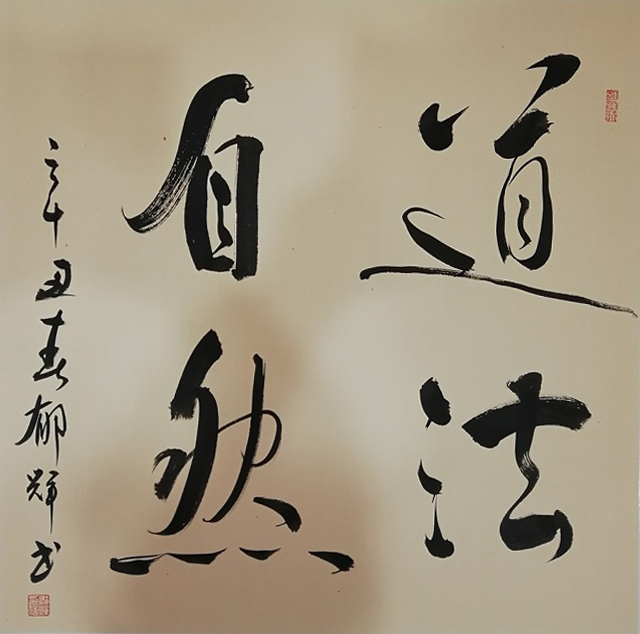 道法
自然
辛丑春郁辉书